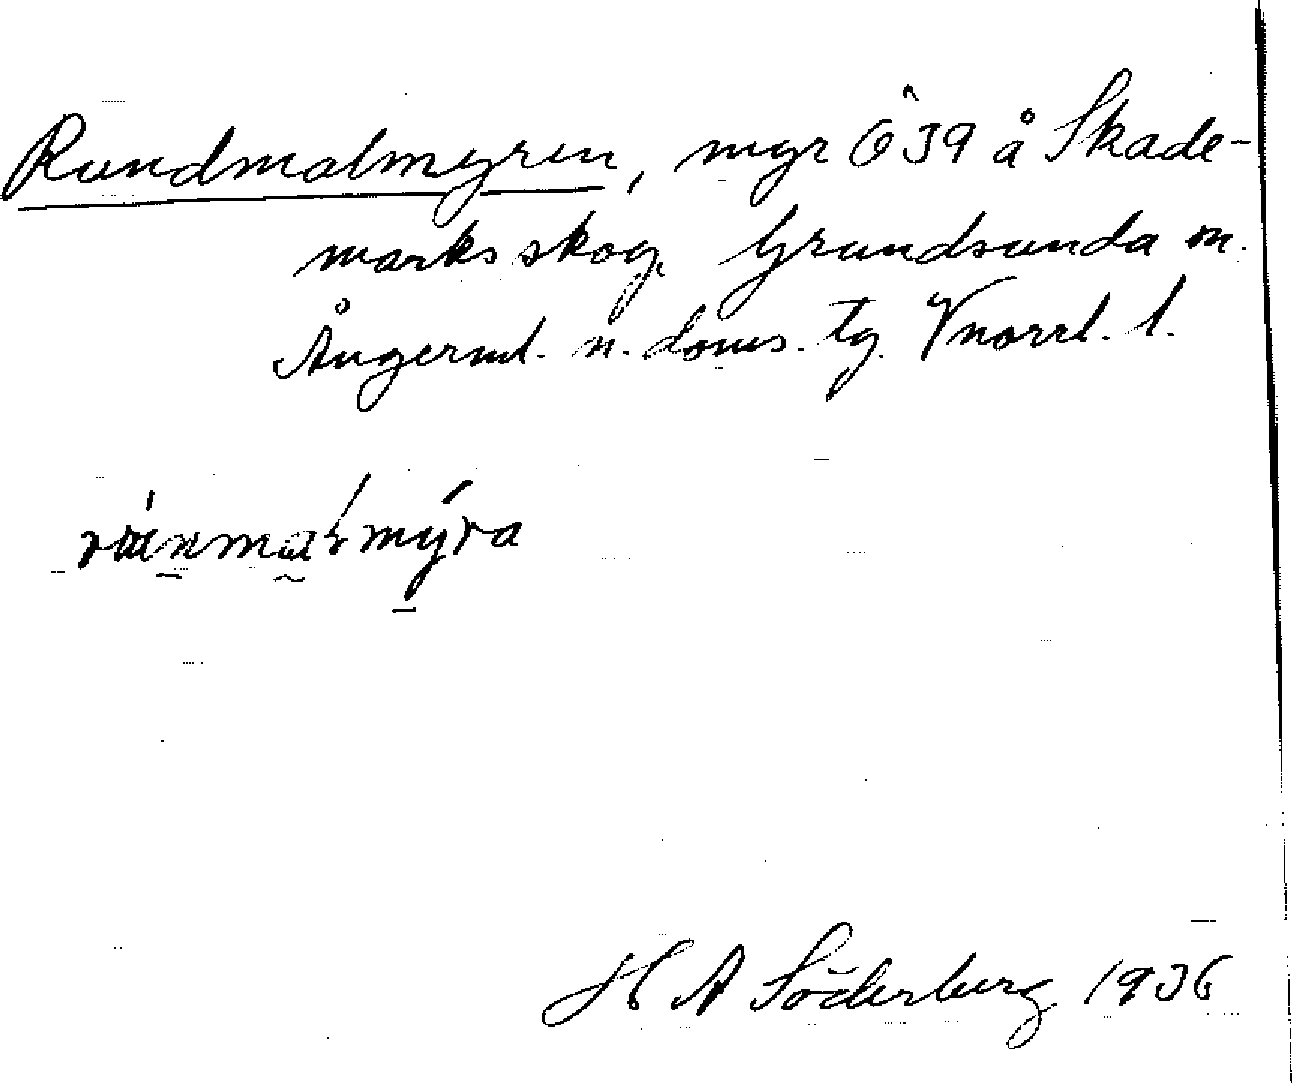 Rundmalmyren, myr Ö 39 å Skade-
marks skog, Grundsunda sn.
Ångerml. n. doms. tg. Vnorrl. l.
H A Söderberg 1936